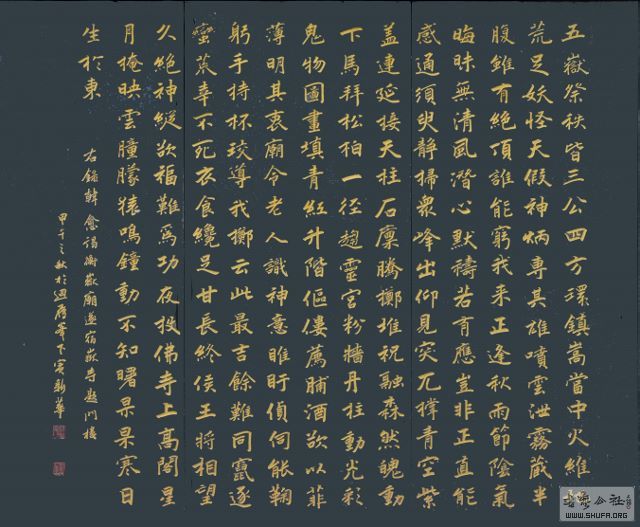 五嶽祭秩皆三公四方環鎮嵩當中火維
荒足妖怪天假神炳專其雄噴雲泄霧蔵半
腹雖有絕頂誰能窮我来正逢秋雨節陰氣
晦昧無清風潛心默禱若有應豈非正直能
感通須臾靜掃衆峰出仰見突兀撐青空紫
蓋連延接天柱石廩騰擲堆祝融森然魄動
下馬拜松柏一徑趨靈宮粉牆丹柱動光彩
鬼物圖畫填青紅升階傴僂薦脯酒欲以菲
薄明其衷廟令老人識神意睢盱偵伺能鞠
躬手持杯珓導我擲云此最吉餘難同竄逐
蠻荒幸不死衣食纔足甘長終侯王將相望
久絕神縱欲福難爲功夜投佛寺上高閣星
月掩映雲朣朦猿鳴鐘動不知曙杲杲寒日
生於東
右錄韓愈謁衡嶽廟遂宿嶽寺題門樓
甲午之秋於迴雁峯下
WWW.SHUFA.ORG